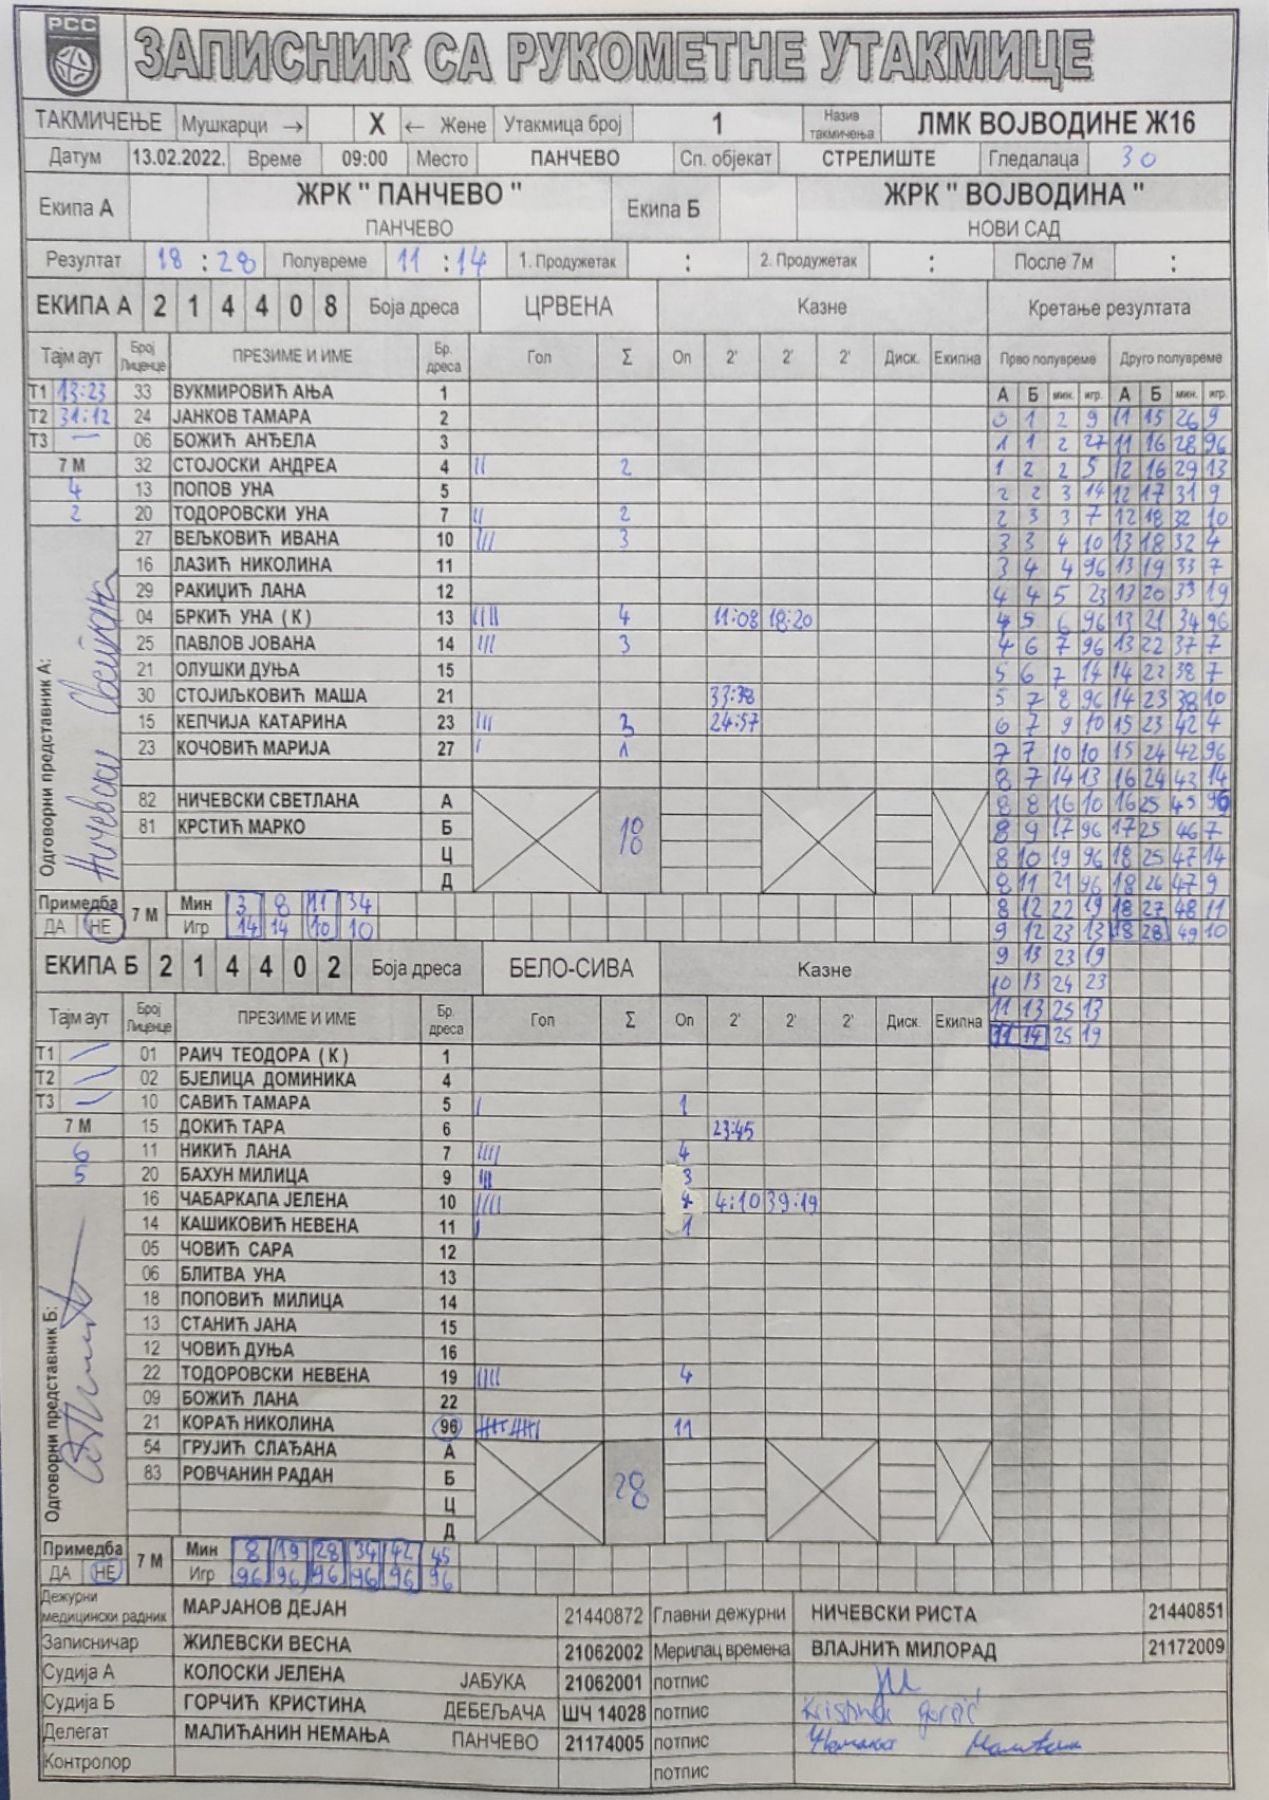 РСС
ЗАПИСНИК СА РУКОМЕТНЕ УТАКМИЦЕ
ТАКМИЧЕЊЕ Мушкарци → X ← Жене Утакмица број 1 Назив такмичења ЛМК ВОЈВОДИНЕ Ж16
Датум 13.02.2022. Време 09:00 Место ПАНЧЕВО Сп. објекат СТРЕЛИШТЕ Гледалаца 30
Екипа А ЖРК " ПАНЧЕВО " ПАНЧЕВО Екипа Б ЖРК " ВОЈВОДИНА " НОВИ САД
Резултат 18 : 28 Полувреме 11 : 14 1. Продужетак : 2. Продужетак : После 7м :
ЕКИПА А 2 1 4 4 0 8 Боја дреса ЦРВЕНА Казне Кретање резултата
Тајм аут Број Лиценце ПРЕЗИМЕ И ИМЕ Бр. дреса Гол Σ Оп 2' 2' 2' Диск. Екипна Прво полувреме Друго полувреме
Т1 13:23 33 ВУКМИРОВИЋ АЊА 1 А Б мин. игр. А Б мин. игр.
Т2 31:12 24 ЈАНКОВ ТАМАРА 2 0 1 2 9 11 15 26 9
Т3 — 06 БОЖИЋ АНЂЕЛА 3 1 1 2 27 11 16 28 96
7 М 32 СТОЈОСКИ АНДРЕА 4 || 2 1 2 2 5 12 16 29 13
4 13 ПОПОВ УНА 5 2 2 3 14 12 17 31 9
2 20 ТОДОРОВСКИ УНА 7 || 2 2 3 3 7 12 18 32 10
27 ВЕЉКОВИЋ ИВАНА 10 ||| 3 3 3 4 10 13 18 32 4
16 ЛАЗИЋ НИКОЛИНА 11 3 4 4 96 13 19 33 7
29 РАКИЏИЋ ЛАНА 12 4 4 5 23 13 20 33 19
04 БРКИЋ УНА ( К ) 13 |||| 4 11:08 18:20 4 5 6 96 13 21 34 96
25 ПАВЛОВ ЈОВАНА 14 ||| 3 4 6 7 96 13 22 37 7
21 ОЛУШКИ ДУЊА 15 5 6 7 14 14 22 38 7
30 СТОЈИЉКОВИЋ МАША 21 33:38 5 7 8 96 14 23 38 10
15 КЕПЧИЈА КАТАРИНА 23 ||| 3 24:57 6 7 9 10 15 23 42 4
23 КОЧОВИЋ МАРИЈА 27 | 1 7 7 10 10 15 24 42 96
8 7 14 13 16 24 43 14
82 НИЧЕВСКИ СВЕТЛАНА А 8 8 16 10 16 25 45 96
81 КРСТИЋ МАРКО Б 18 8 9 17 96 17 25 46 7
Ц 8 10 19 96 18 25 47 14
Д 8 11 21 96 18 26 47 9
Одговорни представник А: Ничевски Светлана
Примедба 7 М Мин 3 8 11 34 8 12 22 19 18 27 48 11
ДА НЕ Игр 14 14 10 10 9 12 23 13 18 28 49 10
ЕКИПА Б 2 1 4 4 0 2 Боја дреса БЕЛО-СИВА Казне 9 13 23 19
10 13 24 23
Тајм аут Број Лиценце ПРЕЗИМЕ И ИМЕ Бр. дреса Гол Σ Оп 2' 2' 2' Диск. Екипна 11 13 25 13
11 14 25 19
Т1 — 01 РАИЧ ТЕОДОРА ( К ) 1
Т2 — 02 БЈЕЛИЦА ДОМИНИКА 4
Т3 — 10 САВИЋ ТАМАРА 5 | 1
7 М 15 ДОКИЋ ТАРА 6 23:45
6 11 НИКИЋ ЛАНА 7 |||| 4
5 20 БАХУН МИЛИЦА 9 ||| 3
16 ЧАБАРКАПА ЈЕЛЕНА 10 |||| 4 4:10 39:19
14 КАШИКОВИЋ НЕВЕНА 11 | 1
05 ЧОВИЋ САРА 12
06 БЛИТВА УНА 13
18 ПОПОВИЋ МИЛИЦА 14
13 СТАНИЋ ЈАНА 15
12 ЧОВИЋ ДУЊА 16
22 ТОДОРОВСКИ НЕВЕНА 19 |||| 4
09 БОЖИЋ ЛАНА 22
21 КОРАЋ НИКОЛИНА 96 11
54 ГРУЈИЋ СЛАЂАНА А
83 РОВЧАНИН РАДАН Б 28
Ц
Д
Одговорни представник Б:
Примедба 7 М Мин 8 19 28 34 42 45
ДА НЕ Игр 96 96 96 96 96 96
Дежурни медицински радник МАРЈАНОВ ДЕЈАН 21440872 Главни дежурни НИЧЕВСКИ РИСТА 21440851
Записничар ЖИЛЕВСКИ ВЕСНА 21062002 Мерилац времена ВЛАЈНИЋ МИЛОРАД 21172009
Судија А КОЛОСКИ ЈЕЛЕНА ЈАБУКА 21062001 потпис
Судија Б ГОРЧИЋ КРИСТИНА ДЕБЕЉАЧА ШЧ 14028 потпис Kristina Gorčić
Делегат МАЛИЋАНИН НЕМАЊА ПАНЧЕВО 21174005 потпис
Контролор потпис